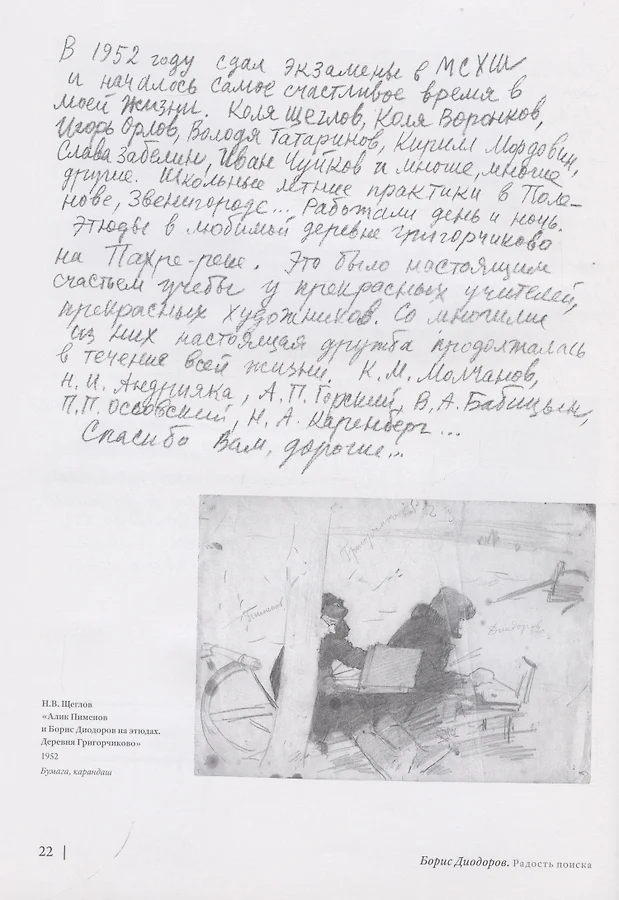 В 1952 году сдал экзамены в МСХШ
и началось самое счастливое время в
моей жизни. Коля Щеглов, Коля Воронков,
Игорь Орлов, Володя Татаринов, Кирилл Мордовин,
Слава Забелин, Иван Чуйков и многие, многие
другие. Школьные летние практики в Поле-
нове, Звенигороде... Работали день и ночь.
Этюды в любимой деревне Григорчиково
на Пахре-реке. Это было настоящим
счастьем учёбы у прекрасных учителей,
прекрасных художников. Со многими
из них настоящая дружба продолжалась
в течение всей жизни. К.М. Молчанов,
Н.И. Андрияка, А.П. Горский, В.А. Бабицын,
П.П. Оссовский, Н.А. Каренберг...
Спасибо Вам, дорогие...
Пименов
Диодоров
Н.В. Щеглов
«Алик Пименов
и Борис Диодоров на этюдах.
Деревня Григорчиково»
1952
Бумага, карандаш
22 |
Борис Диодоров. Радость поиска